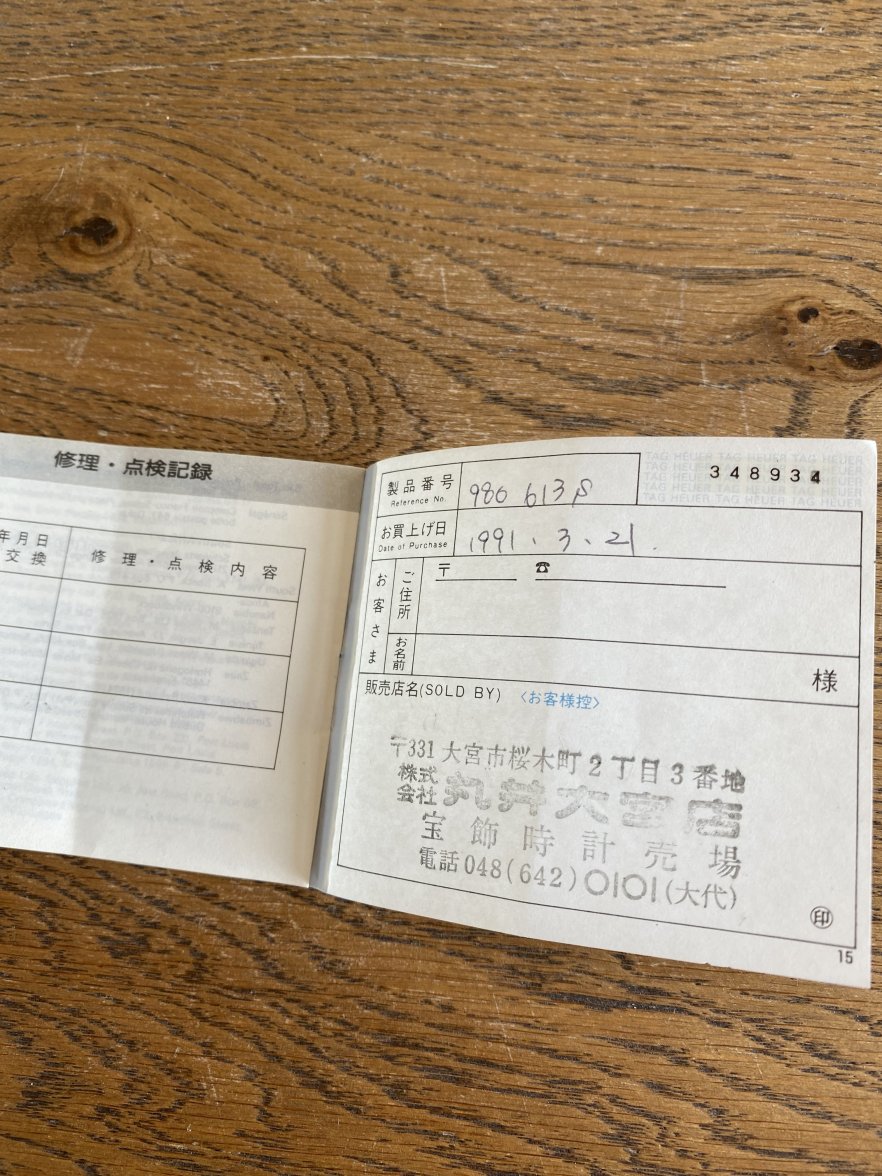 修理・点検記録
年月日
交換
修理・点検内容
製品番号
Reference No.
986 613
TAG HEUER TAG HEUER TAG HEUER
348934
お買上げ日
Date of Purchase
1991.3.21.
お客さま
ご住所
〒 ☎
お名前
様
販売店名(SOLD BY) <お客様控>
〒331 大宮市桜木町2丁目3番地
株式会社 丸井大宮店
宝飾時計売場
電話048(642)0101(大代)
印
15